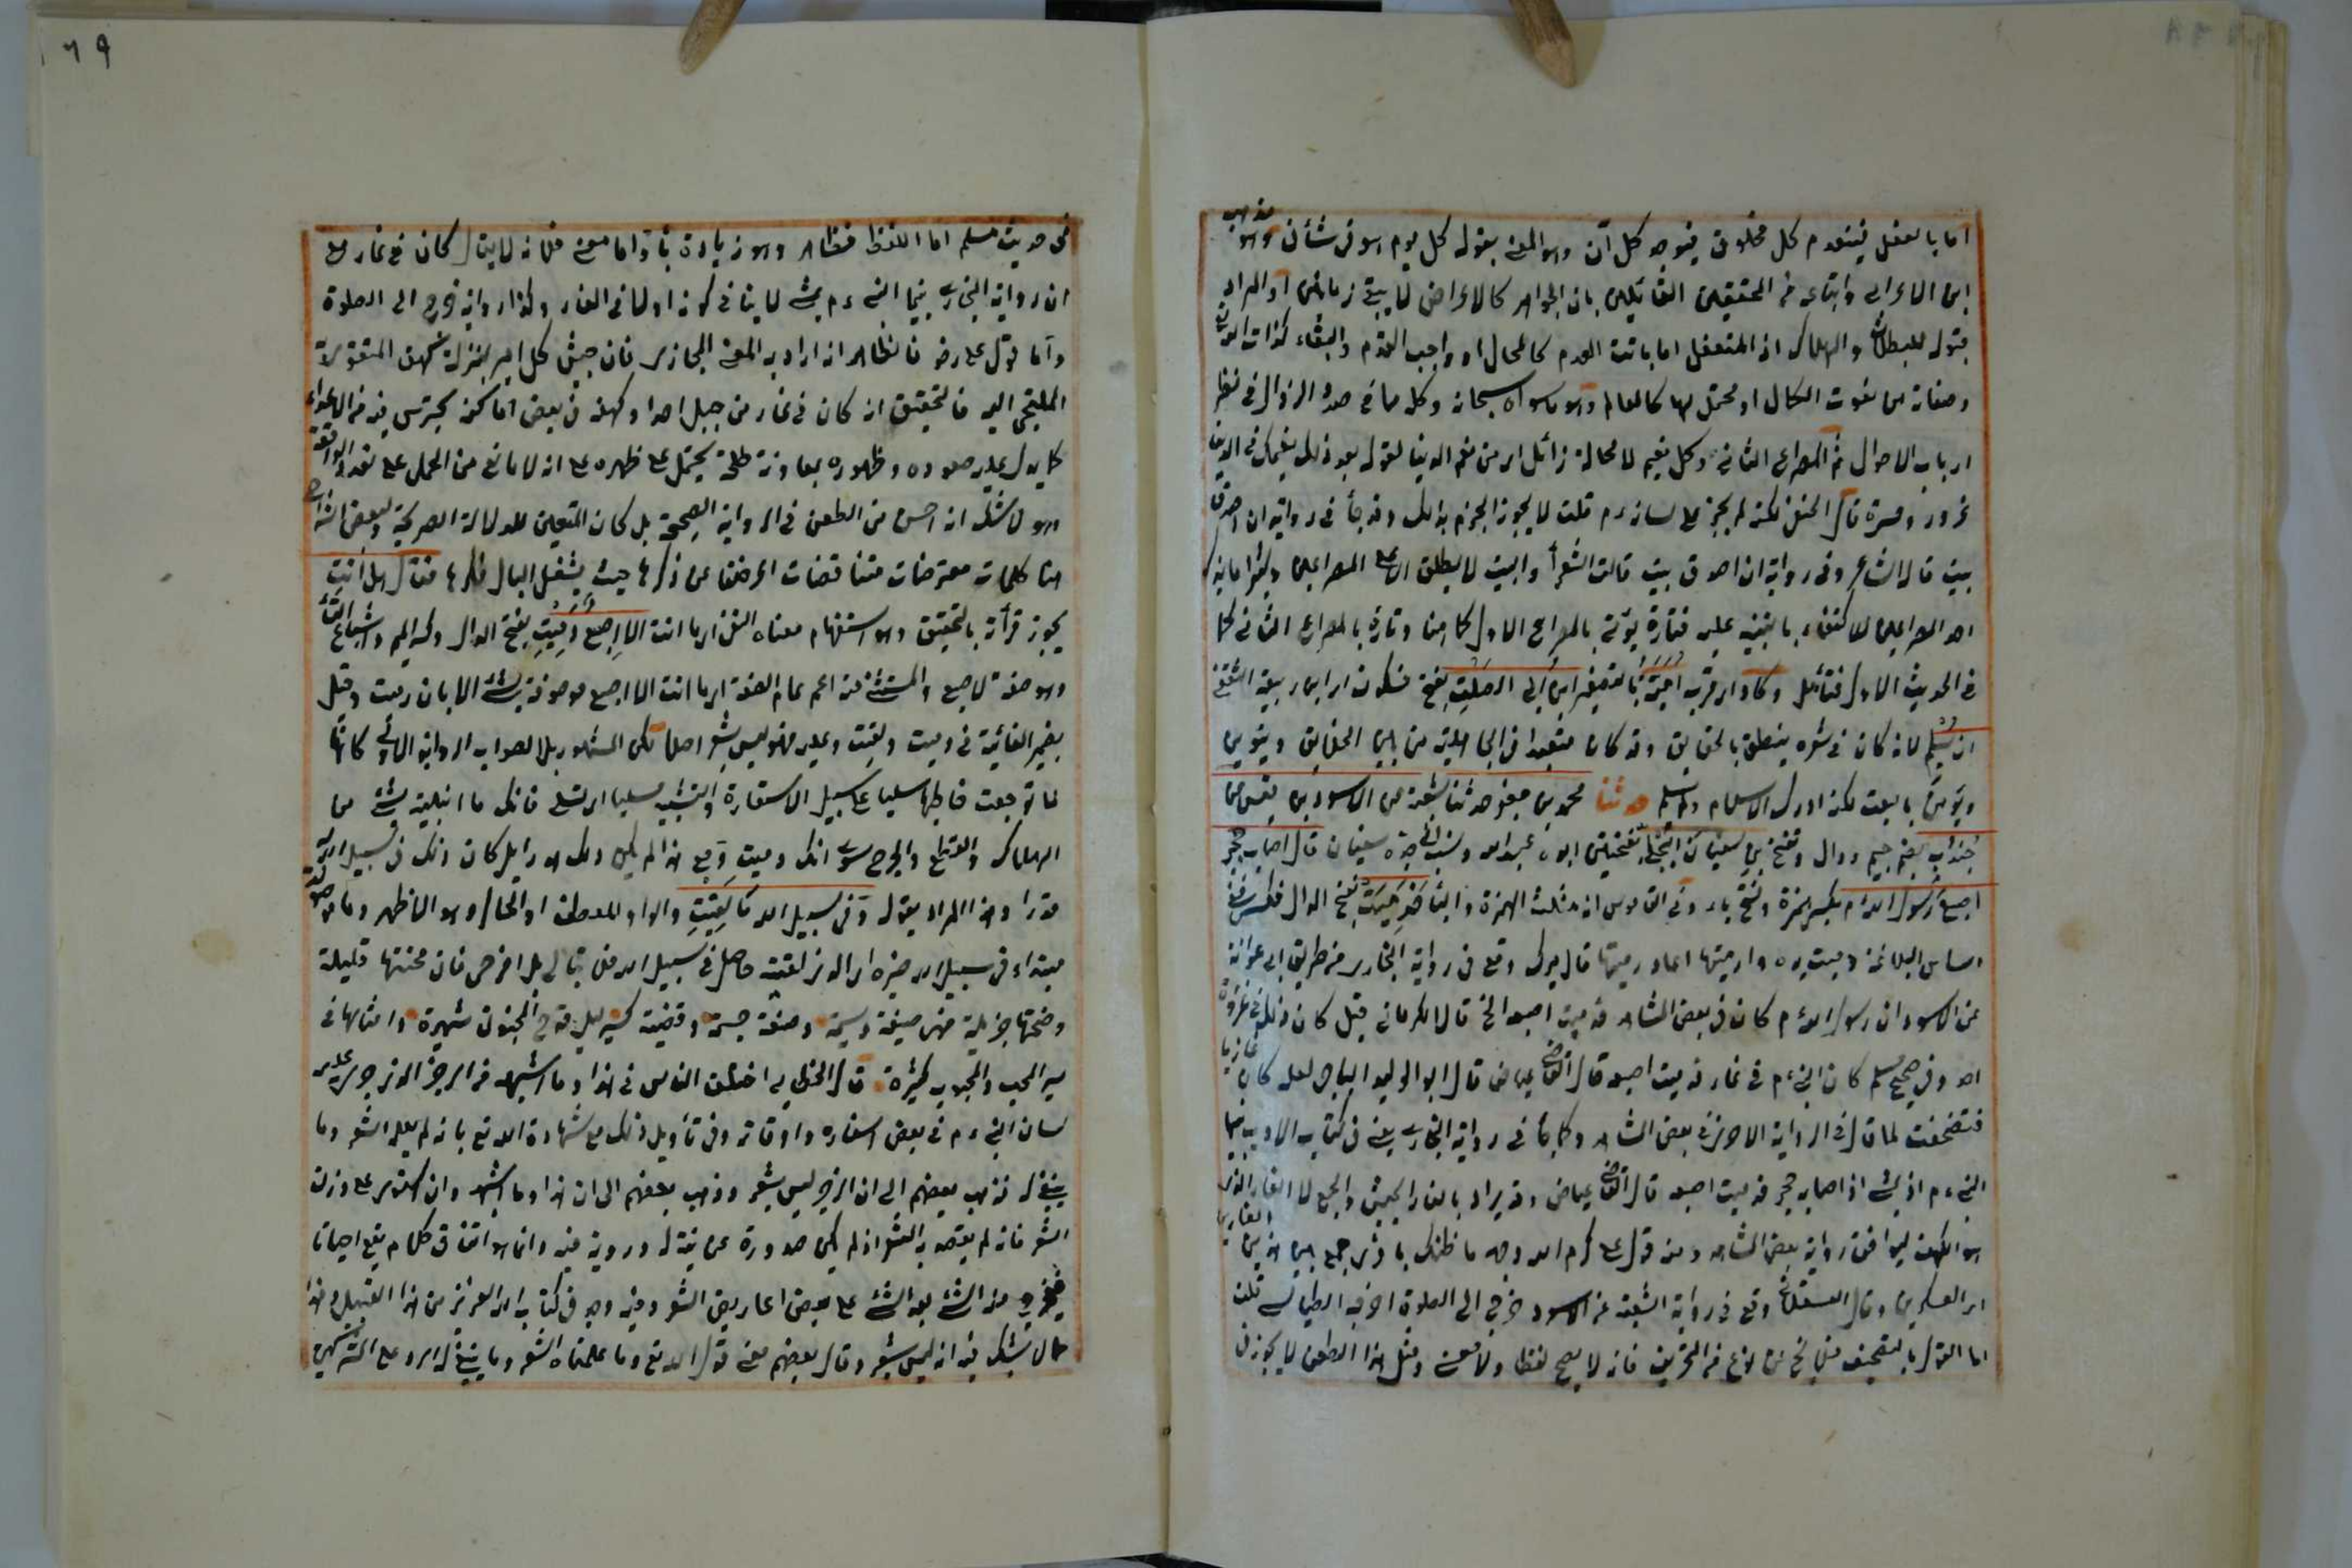 اما بالفعل فينعدم كل مخلوق فيوجد كل آن وهو المعنى بقوله كل يوم هو في شأن وهو مذهب
ابن الاعرابي واتباعه من المحققين القائلين بان الجواهر كالاعراض لا يبقى زمانين او المراد
بقوله للبطلان والهلاك اذ المتعقل اما ثابت العدم كالمحال او واجب القدم والبقاء كذات الله
وصفاته من نعوت الكمال او محتمل لهما كالعالم وهو ما سواه سبحانه وكله مما في صدد الزوال في نظر
ارباب الاحوال ثم المصراع الثاني وكل نعيم لا محالة زائل اي من نعم الدنيا لقوله بعد ذلك نعيمك في الدنيا
غرور وحسرة قال الحنفي لكنه لم يجر على لسانه ءم قلت لا يجوز الجزم بذلك وقد جاء في رواية ان اصدق
بيت قاله الشاعر وفي رواية ان اصدق بيت قالت الشعراء والبيت لا يطلق الا على المصراعين وذكر
احد المصراعين للاكتفاء بالتنبيه عليه فتارة يؤتى بالمصراع الاول كما هنا وتارة بالمصراع الثاني كما
في الحديث الاول فتأمل وكاد اي قرب امية بالتصغير ابن ابي الصلت بفتح فسكون اي ابن ربيعة الثقفي
ان يسلم لانه كان في شعره ينطق بالحقايق وقد كان متعبدا في الجاهلية من بين الخلايق ويتدين
ويؤمن بالبعث لكنه ادرك الاسلام ولم يسلم حدثنا محمد بن جعفر حدثنا شعبة عن الاسود بن قيس عن
جندب بضم جيم ودال وتفتح بن سفيان البجلي بفتحتين ابوه عبد الله ونسب الى جده سفيان قال اصاب حجر
اصبع رسول الله ءم بكسر همزة وفتح باء وفي القاموس انه مثلث الهمزة والباء فدميت بفتح الدال فكسر ففي
اساس البلاغة دميت يده وادميتها انا ودميتها قال ميرك وقع في رواية البخاري من طريق ابي عوانة
عن الاسود ان رسول الله ءم كان في بعض المشاهد فدميت اصبعه الخ قال الكرماني قيل كان ذلك في غزوة
احد وفي صحيح مسلم كان النبي ءم في غار فدميت اصبعه قال القاضي عياض قال ابو الوليد الباجي لعله كان غازيا
فتصحفت لما قال في الرواية الاخرى في بعض المشاهد وكما جاء في رواية البخاري يعني في كتاب الادب بينما
النبي ءم اذ يمشي اذ اصابه حجر فدميت اصبعه قال القاضي عياض وقد يراد بالغار الجيش والجمع لا الغار الذي
هو الكهف ليوافق رواية بعض المشاهد ومنه قول علي كرم الله وجهه ما ظنك بامرئ جمع بين هذين الغارين
اي العسكرين وقال العسقلاني وقع في رواية شعبة عن الاسود خرج الى الصلوة اخرجه الطيالسي قلت
اما القول بالتصحيف فلا يخ عن نوع من التحريف فانه لا يصح لفظا ولا معنى ومثل هذا الطعن لا يجوز في
في حديث مسلم اما اللفظ فظاهر وهو زيادة ياء واما معنى فلانه لا يقال كان في غاز مع
ان رواية البخاري بينما النبي ءم يمشي لا ينافي كونه اولا في الغار وكذا رواية خرج الى الصلوة
واما قول علي رضه فالظاهر انه اراد به المعنى المجازي فان جيش كل امير بمنزلة كهفه المتقوى به
الملتجئ اليه فالتحقيق انه كان في غار من جبل احد او كهف في بعض اماكنه يحترس فيه من الاعداء
كما يدل عليه صعوده وظهوره بمعاونة طلحة يحتمل على ظهره على انه لا مانع من الحمل على تعدد الواقعة
وهو لا شك انه احسن من الطعن في الرواية الصحيحة بل كان المتعين للدلالة الصريحة ولبعض الشراح
هنا كلمات معترضات متناقضات اعرضنا عن ذكرها حيث يشغل البال فكرها فقال هل انت
يجوز قرأته بالتحقيق وهو استفهام معناه النفي اي ما انت الا اصبع دميت بفتح الدال وكسر الميم واشباع التاء
وهو صفة لاصبع والمستثنى منه اعم عام الصفة اي ما انت الا اصبع موصوفة بشئ الا بان دميت وقيل
بضمير الغائبة في دميت ولقيت وعليه فهو ليس بشعر اصلا لكن المشهور بل الصواب الرواية الاولى كانها
لما توجعت خاطبها مسليا على سبيل الاستعارة والتشبيه مسليا اي تسلي فانك ما ابتليت بشئ من
الهلاك والقطع والجرح سوى انك دميت ومع هذا لم يكن دمك هدرا بل كان ذلك في سبيل الله
قدرا وهذا المراد بقوله وفي سبيل الله ما لقيت والواو للعطف او الحال وهو الاظهر وما موصولة
مبتداء في سبيل الله خبره اي الذي لقيت حاصل في سبيل الله فلا تبالي بل افرحي فان محنتها قليلة
ومنحتها جزيلة فهي صيغة وسيمة وصنعة جسيمة وقضية كسر ليلى قدح المجنون شهيرة وامثالها في
سير المحب والمحبوب كثيرة قال الخطابي اختلف الناس في هذا وما اشبهه من الرجز الذي جرى على
لسان النبي ءم في بعض اسفاره واوقاته وفي تأويل ذلك مع شهادة الله تع بانه لم يعلمه الشعر وما
ينبغي له فذهب بعضهم الى ان الرجز ليس بشعر وذهب بعضهم الى ان هذا وما اشبهه وان استوى على وزن
الشعر فانه لم يقصد به الشعر اذ لم يكن صدوره عن نية له وروية فيه وانما هو اتفاق كلام يقع احيانا
فيخرج منه الشئ بعد الشئ على بعض اعاريض الشعر ومنه وجد في كتاب الله العزيز من هذا القبيل وهذا
مما لا يشك فيه انه ليس بشعر وقال بعضهم معنى قول الله تع وما علمناه الشعر وما ينبغي له الرد على المشركين
٦٩